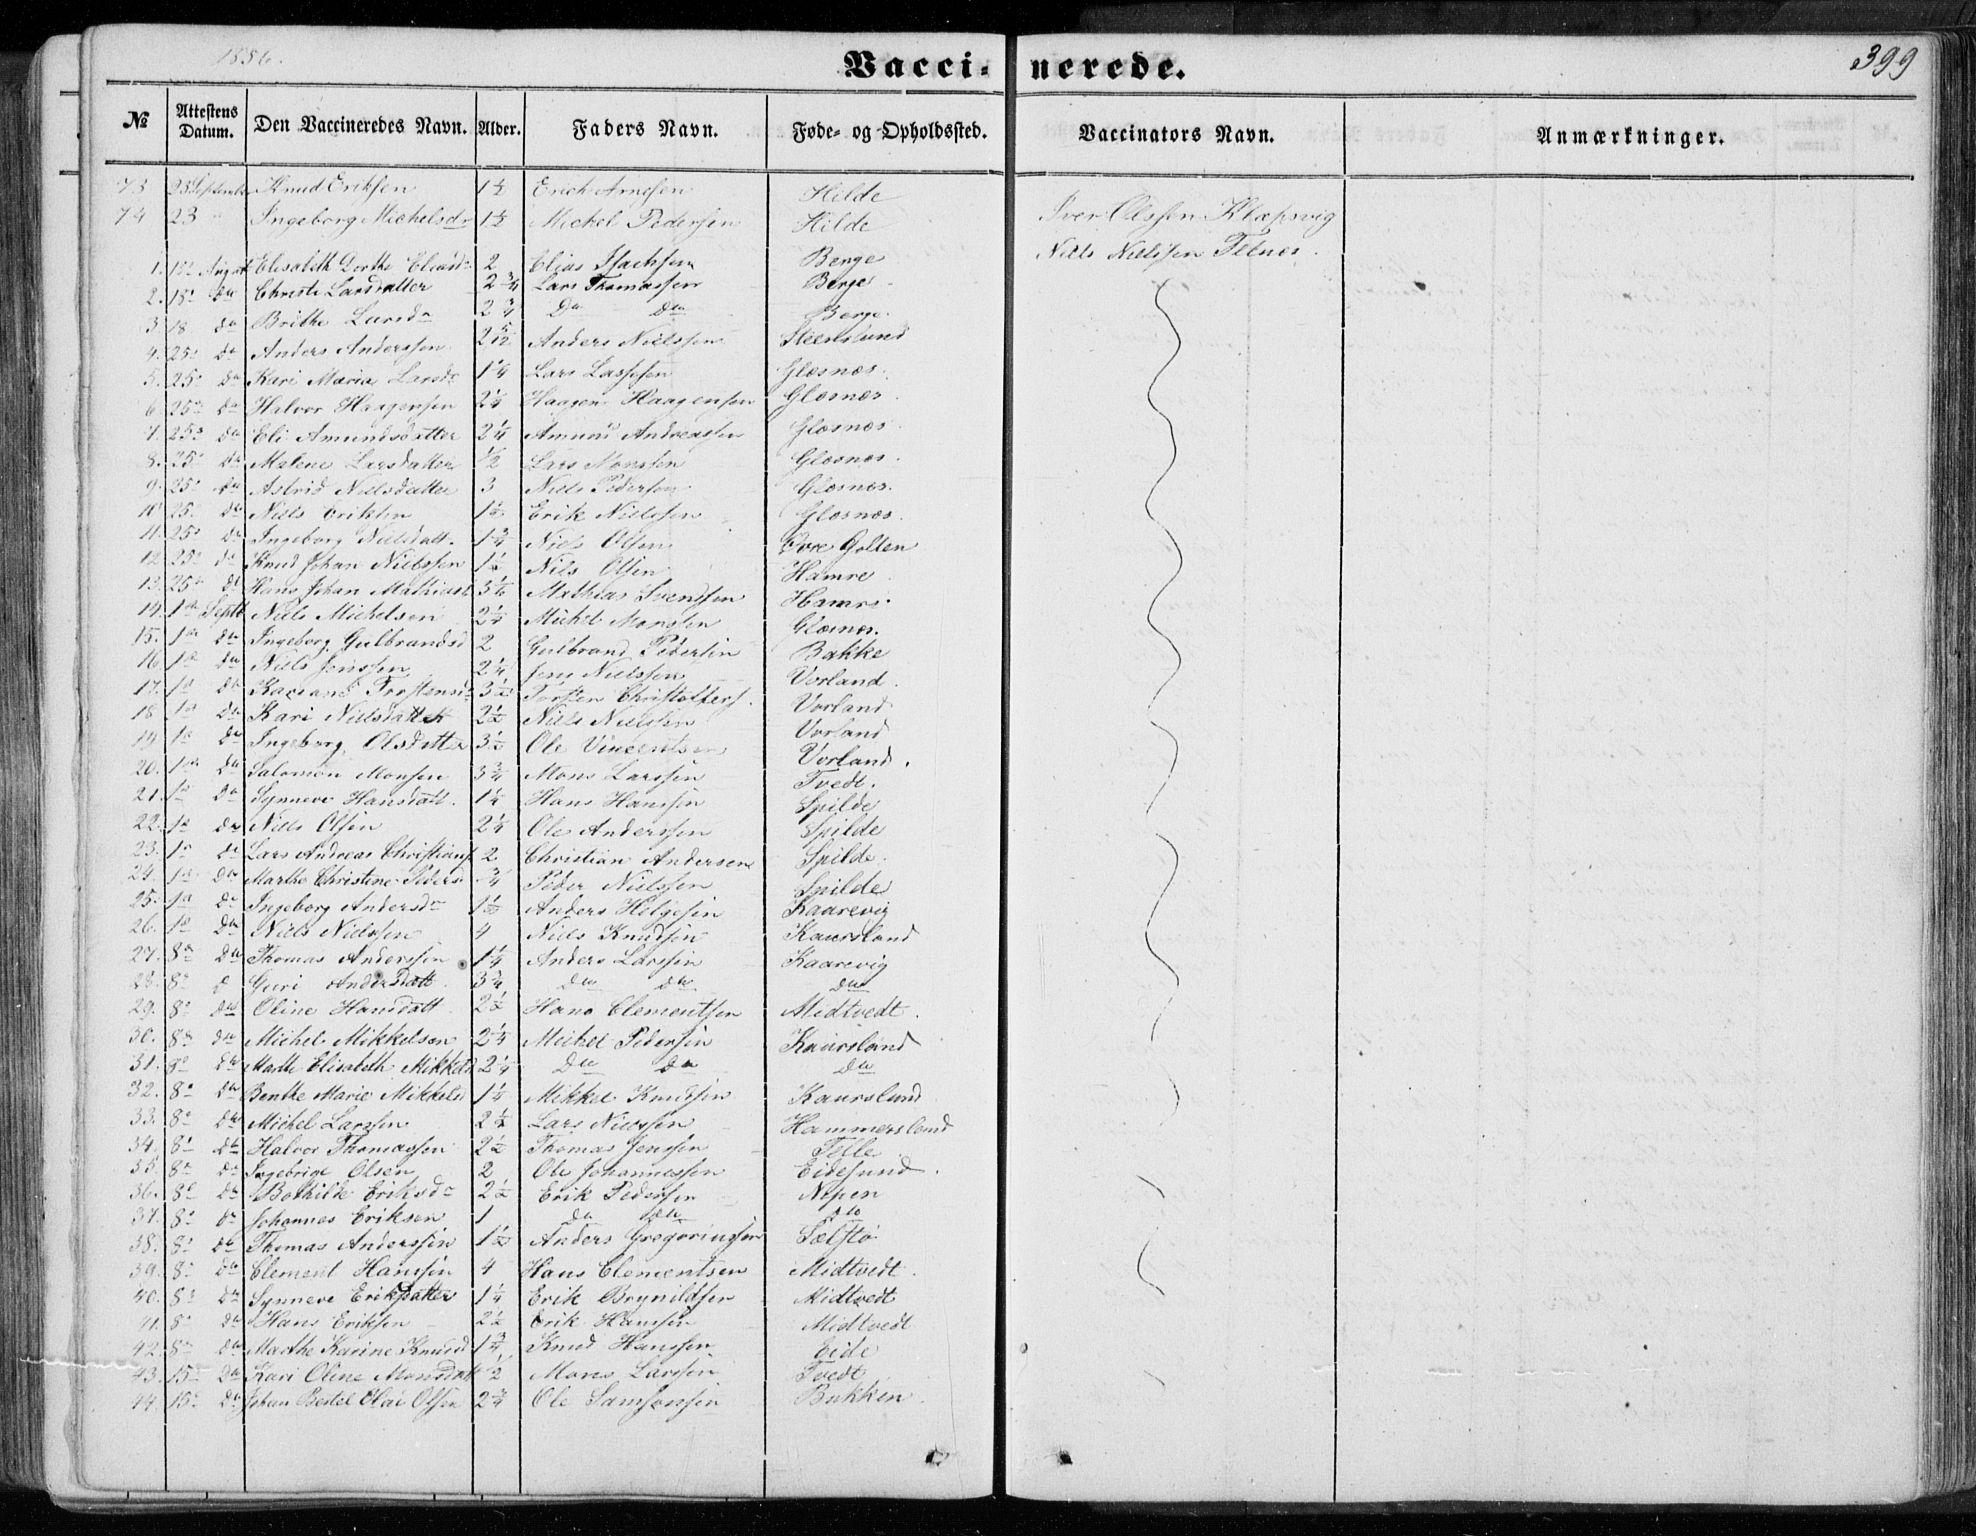 1856.
Vaccinerede.
399
№ Attestens Datum. Den Vaccineredes Navn. Alder. Faders Navn. Føde- og Opholdssted. Vaccinators Navn. Anmærkninger.
73 23 September Knud Eriksen 1½ Erich Arnesen Hilde
74 23 " Ingeborg Michelsdr 1½ Michel Pedersen Hilde Iver Olssen Klepsvig
1. 18 August Elisabeth Dorthe Eliasd 2 Elias Isachsen Berge Niels Nielssen Telnes.
2. 18 do Christi Larsdatter 2¾ Lars Thomassen Berge
3 18 do Brithe Larsdr 2¾ Do Do Berge.
4. 25 do Anders Anderssen 2 5/12 Anders Nielssen Steenslund
5. 25 do Kari Maria Larsdr 1¼ Lars Lassesen Glesnes.
6. 25 do Halvor Haagensen 2¼ Haagen Haagensen Glesnes.
7. 25 do Eli Amundsdatter 2¼ Amund Andreassen Glesnes.
8. 25 do Malene Larsdatter ½ Lars Monssen Glesnes.
9. 25 do Astrid Nielsdatter 3 Niels Pedersen Glesnes.
10 25 do Niels Eriksen 1½ Erik Nielssen Glesnes.
11. 25 do Ingeborg Nielsdatt. 1¾ Niels Olsen Øvre Golten
12. 25 do Knud Johan Nielssen 1½ Nils Olsen Hamre
13. 25 do Hans Johan Mathiass 3⅙ Mathias Svenssen Hamre.
14. 1 Septb Niels Michelsen 2¼ Michel Monssen Glesnes.
15. 1 do Ingeborg Gulbrandsd 2 Gulbrand Pedersen Bakke
16 1 do Niels Jenssen 2¼ Jens Nielssen Vorland.
17. 1 do Torstensd 3½ Torsten Christoffers. Vorland
18 1 do Kari Nielsdatter 2½ Niels Nielssen Vorland
19 1 do Ingeborg Olsdatter 3½ Ole Vincentsen Vorland.
20. 1 do Salomon Monsen 3¾ Mons Larssen Tvedt.
21. 1 do Synneve Hansdatt. 1¼ Hans Hanssen Spilde
22. 1 do Niels Olsen 2¼ Ole Anderssen Spilde
23. 1 do Lars Andreas Christians 2 Christian Andersen Spilde.
24. 1 do Marthe Christine Peders ¾ Peder Nielssen Spilde
25. 1 do Ingeborg Andersdr 1½ Anders Helgesen Kaarevig
26. 1 do Niels Nielssen 4 Niels Knudsen Kaursland
27. 8 do Thomas Anderssen 1¼ Anders Larssen Kaarevig
28. 8 d Guri Andersdatt. 3¾ do do do
29. 8 do Oline Hansdatt. 2½ Hans Clementsen Midtvedt.
30. 8 do Michel Mikkelsen 2¼ Michel Pedersen Kaursland
31. 8 do Marthe Elisabeth Mikkels 2¼ Do Do Do
32. 8 do Benthe Marie Mikkelsd 1¼ Mikkel Knudsen Kaursland
33. 8 do Michel Larssen 2½ Lars Nielssen Hammersland
34. 8 do Halvor Thomassen 2½ Thomas Jenssen Telle
35. 8 do Ingebrigt Olsen 2 Ole Johannessen Eidesund.
36. 8 do Bothilde Eriksdr 2½ Erik Pedersen Nepen
37. 8 do Johannes Eriksen 1 do do do
38. 8 do Thomas Anderssen 1½ Anders Gregoriussen Sælstø
39. 8 do Clement Hanssen 4 Hans Clementsen Midtvedt.
40. 8 do Synneve Eriksdatter 1¼ Erik Brynildsen Midtvedt
41. 8 do Hans Eriksen 2½ Erik Hanssen Midtvedt
42. 8 do Marthe Karine Knudsd 1¾ Knud Hanssen Eide
43. 15 do Kari Oline Monsdatt ½ Mons Larssen Tvedt
44 15 do Johan Bertel Elai Olsen 2¾ Ole Samsonsen Bukken.